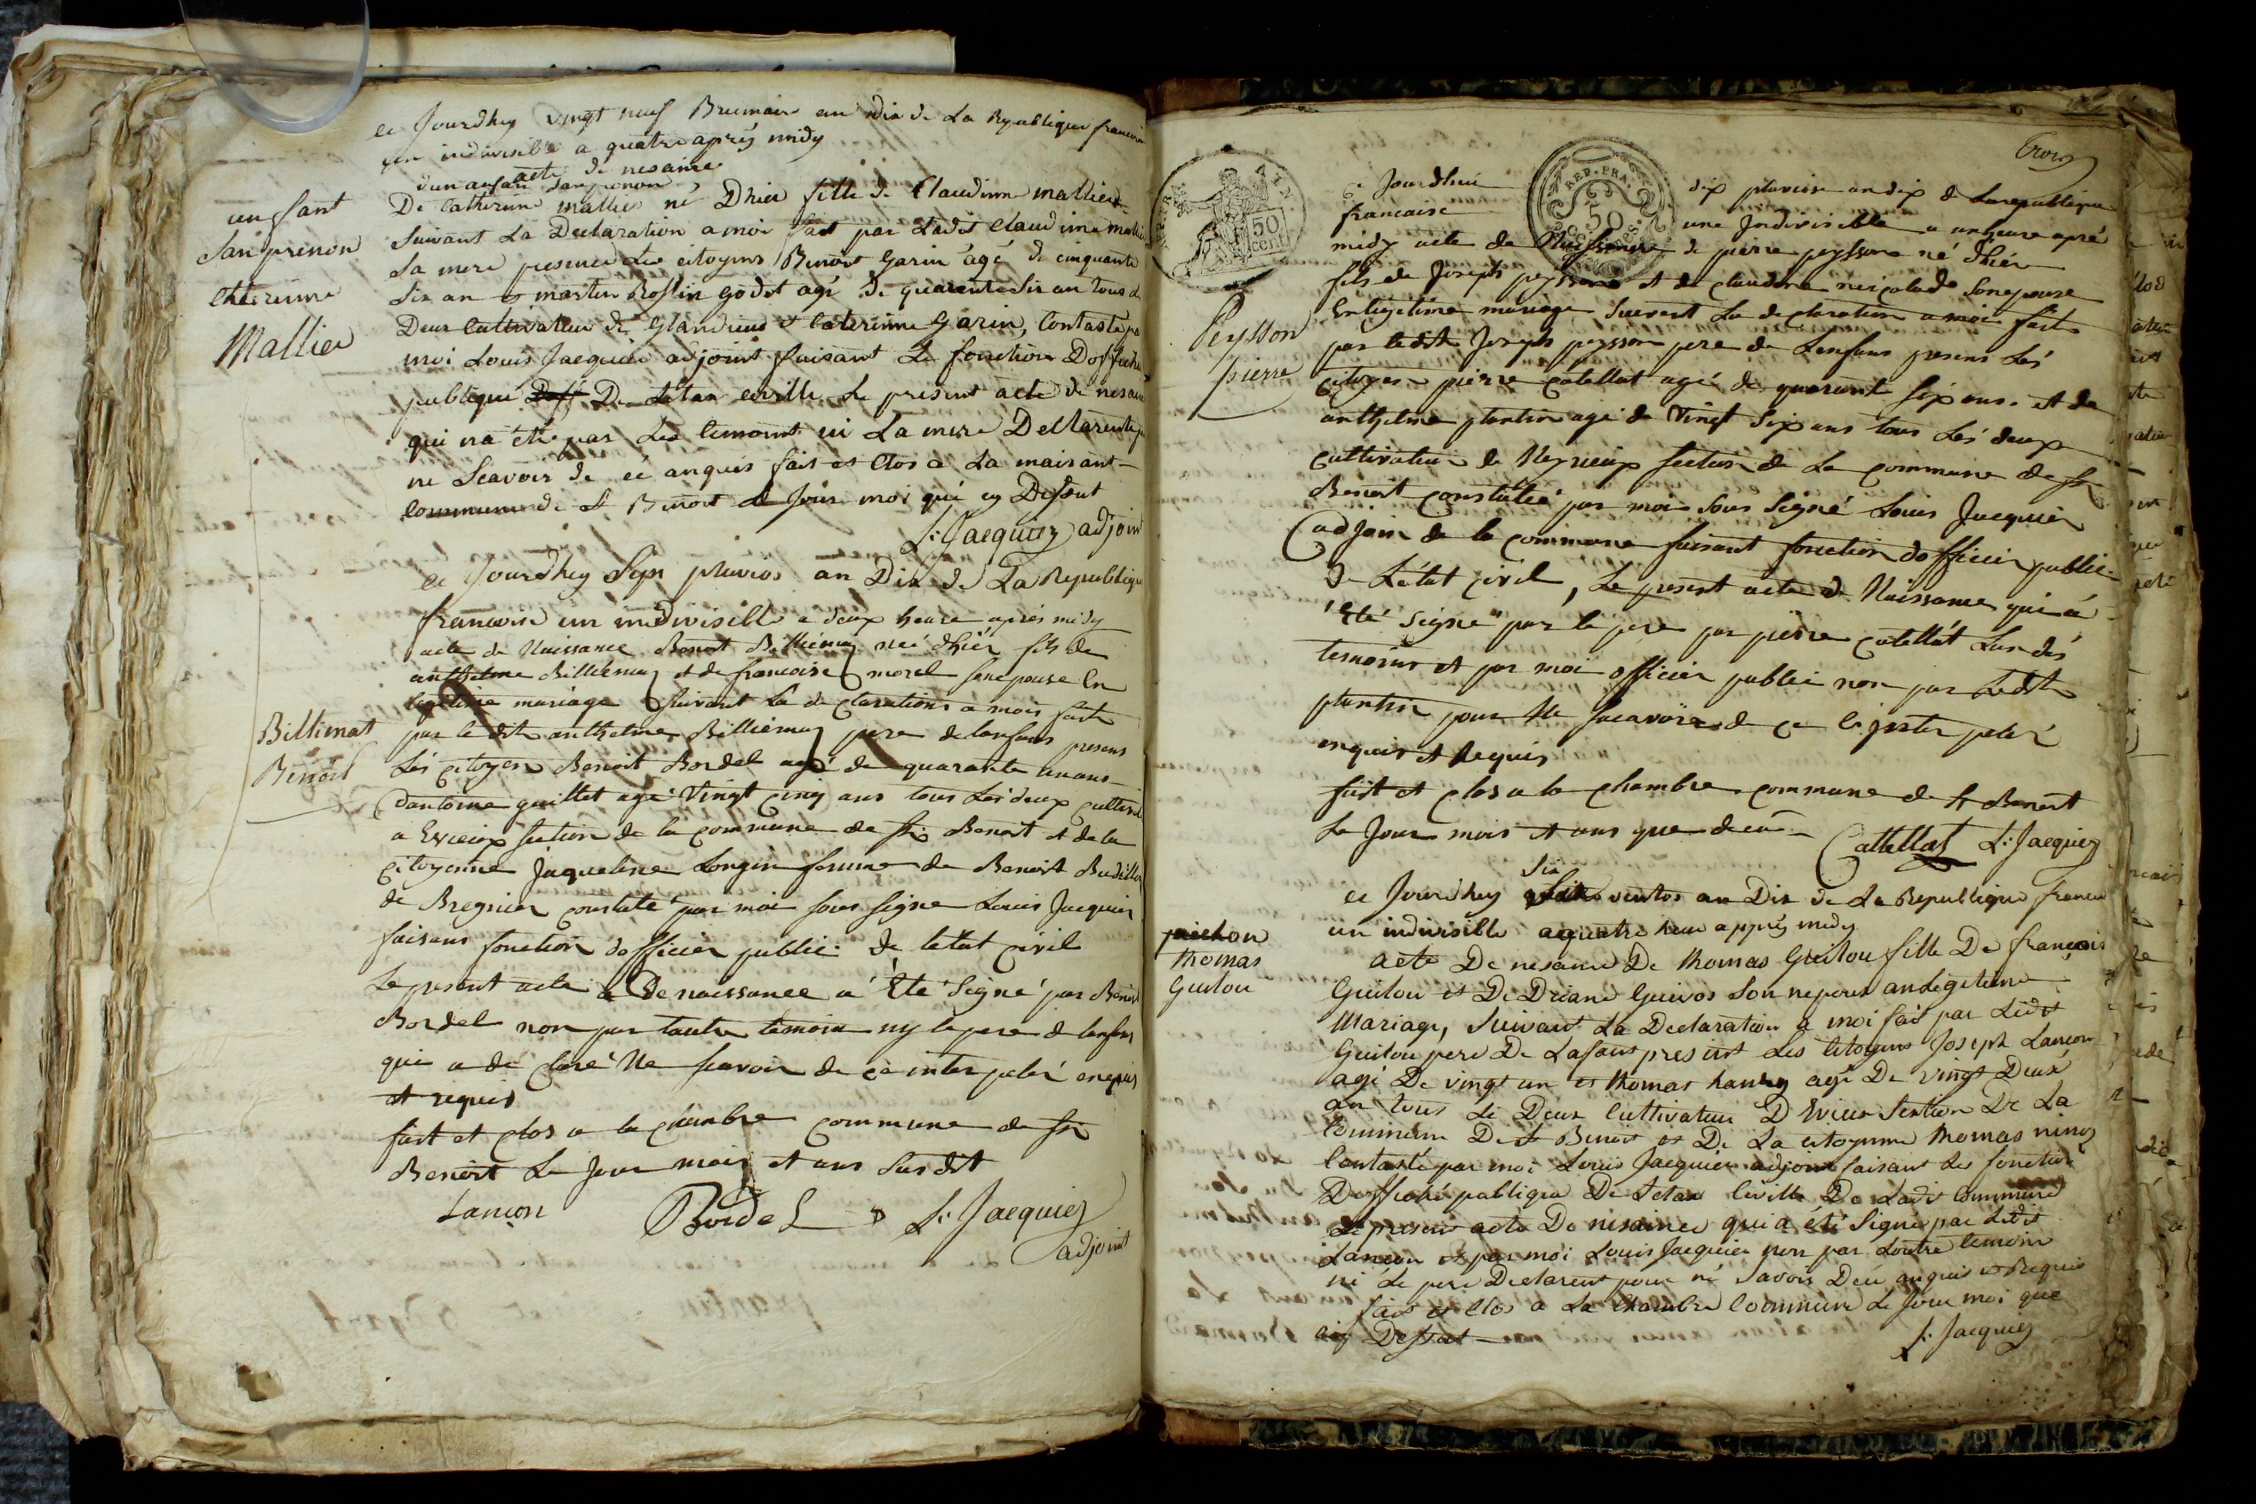 ce Jourdhuy vingt neuf Brumair an dix de La Republique francoise
un indivisible a quatre aprés midy
acte de nesance
d'un anfant san prenon
De Catherine mallier né Dhier fille de Claudinne mallier
Suivant La Declaration a moi fait par Ladit Claudinne mallier
Sa mere presence des citoyens Benoit Garin âgé de cinquante
Six an et martin Roslin godet agé de quarente Six an tous de
Deux Cultivateur de Glandieux et Caterinne Garin, Contasté par
moi Louis Jacquier adjoint faisant Le fonction Dofficier
publique Doff De Létan civille Le present acte de nesance
qui na été par Les temoint ni La mere Dellarente
ne Scavoir de cé anquis fait et Clos a La maisant
commune de St Benoit Le Jour moi qué cy Dessut
L. Jacquier adjoint
anfant
San prenon
Chaterinne
Mallier
ce Jourdhuy Sept pluvios an Dix de La Republique
francoise un indivisible a deux heure aprés midy
acte de Naissance Benoit Billiemaz né dhiér fils de
anthelme Billiemaz et de francoise morel son epouse En
legitime mariage Suivant La de clarations a moi faite
par le dit anthelme Billiemaz pere de lenfans presens
Lés Citoyen Benoit Bordel agé de quarante un ans
dantoine guillet agé vingt cinq ans tous Lés deux Cultiv
a Evieux section de la commune de St Benoit et de la
Citoyenne Jaqueline Longin femme de Benoit Budillon
de Bregnier constaté par moi sous signe Louis Jacquier
faisans fonction dofficier public de letat civil
Le present acte De naissance a Eté Signé par Benoit
Bordel non par lautre temoin ny le pere de lenfans
qui a dé claré Ne scavoir de ce inter pelér enquis
et requis
fait et clos a la chambre commune de St
Benoit Le Jour mois et ans Sus dit
Lançon Bordel L. Jacquier
adjoint
Billimat
Benoit
Trois
REP. FRA.
50
50
cent
Ce Jourdhui dix pluviose an dix de La republique
francaise une Indivisible a un heure apré
midy acte de Naissance de pierre peysson né Dhiér
fils de Joseph peysson et de claudine nicolade son epouse
En legitime mariage Suivant La declaration a moi faite
par ledit Joseph peysson pere de Lenfans presens Lés
Citoyen pierre Catellat agé de quarante six ans. et de
anthelme plantin agé de Vingt Six ans tous Lés deux
cultivateur de Neyrieux section de La commune de St
Benoit constatée par moi Sous Signé Louis Jacquier
adjoin de la commune faisant fonction dofficier public
de Létat civil, Le present acte de Naissance qui a
Eté Signé par le pere par pierre catellat Lun dés
temoins et par moi officier public non par Ledit
plantin pour Ne sacavoire de ce linter peler
enquis et Requis
fait et clos a la chambre commune de St Benoit
Le Jour mois et ans que deçu
Catellat L. Jacquier
Peysson
pierre
ce Jourdhuy Six ventos an Dix de La Republique franc
un indivisible a quatre heure apprés midy
acte De nesance De thomas Guilou fille De francois
Guilou et De Driane Guivos Son nepous an legitime
Mariage, Suivant La Declaration a moi fait par Ledit
Guilou pere De Lafant presint Les Citoyens Joseph Lancon
agé De vingt un et thomas hanry agé De vingt Deux
an tous Lé Deux Cultivateur D Evieux Section De La
Commune De St Benoit et De La citoyenne thomas
Contasté par moi Louis Jacquier adjoint faisant Les fonction
Dofficié publique De Létax Civille De Ladit Commune
Le present acte De nésance qui a été Signé par Ledit
Lancon et par moi Louis Jacquier non par Loutre temoin
ni Le pere Declarent pour né Savoir Decé anquis et Requis
fait et Clos a La Chambre Commune Le Jour moi que
cy Dessut
L. Jacquier
pichon
thomas
Guilou